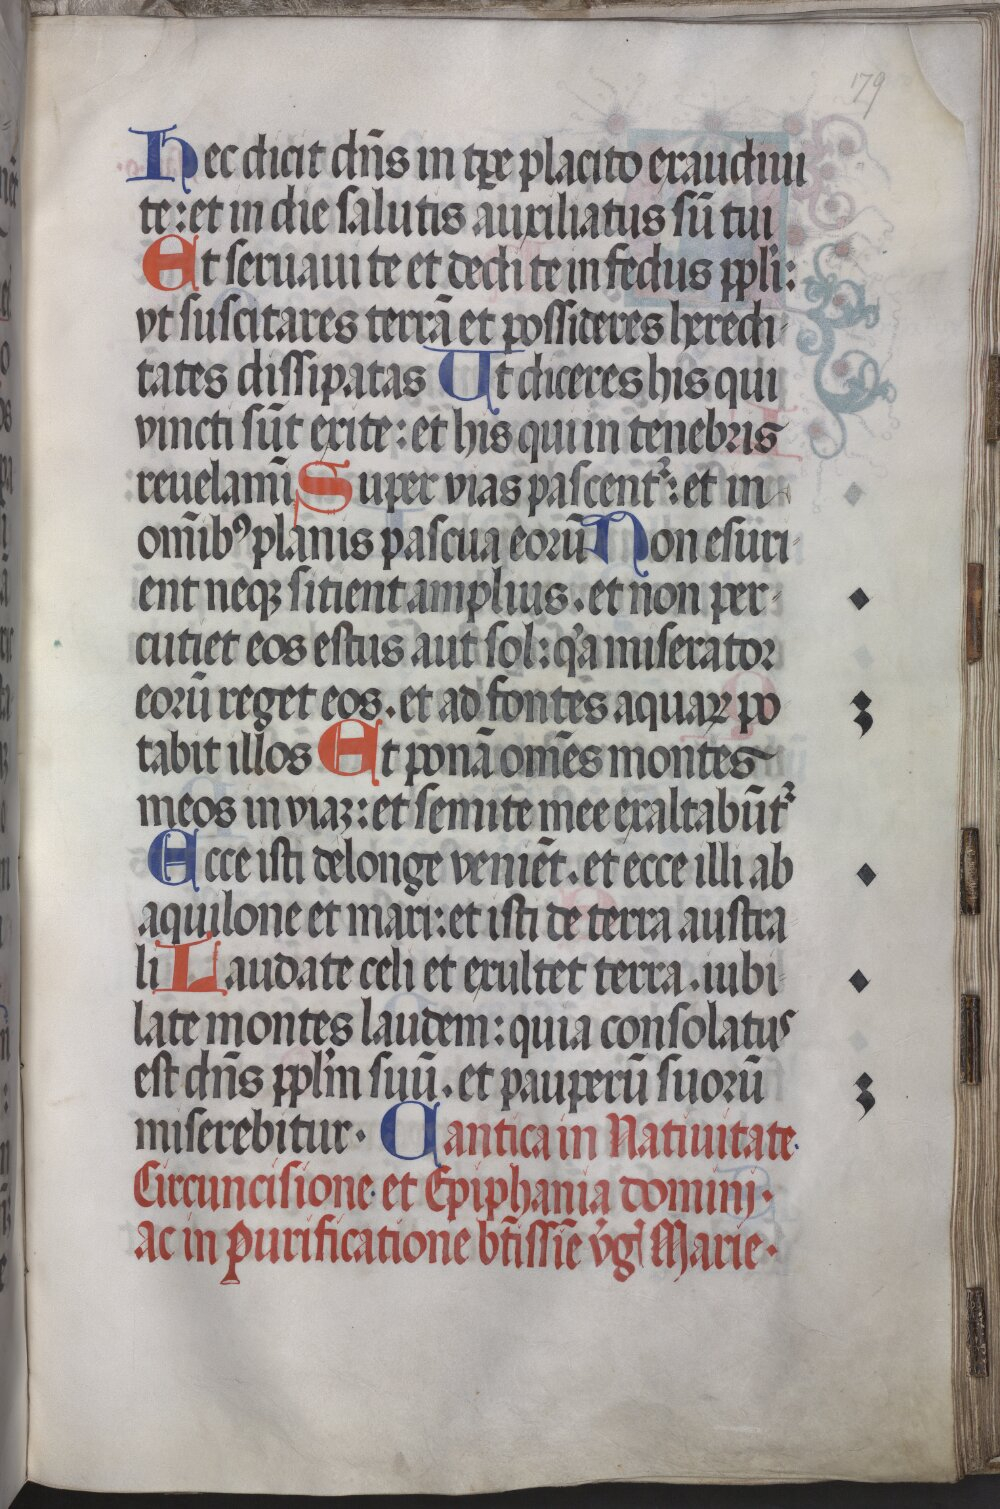 179
Hec dicit dn̄s in tp̄e placito exaudiui
te: et in die salutis auxiliatus sū tui
Et seruaui te et dedi te in fedus ppl̓i:
vt suscitares terrā et possideres heredi-
tates dissipatas Ut diceres his qui
vincti sūt exite: et his qui in tenebris
reuelamī Super vias pascentᷣ: et in
om̄ibꝰ planis pascua eorū Non esuri-
ent neqꝫ sitient amplius. et non per-
cutiet eos estus aut sol: q̓a miserator
eorū reget eos. et ad fontes aquaꝝ po
tabit illos Et ponā om̄es montes
meos in viaꝫ: et semite mee exaltabūtᷣ
Ecce isti delonge veniēt. et ecce illi ab
aquilone et mari: et isti de terra austra
li Laudate celi et exultet terra. iubi-
late montes laudem: quia consolatus
est dn̄s ppl̓m suū. et pauperū suorū
miserebitur. Cantica in Natiuitate.
Circuncisione. et Epiphania domini.
ac in Purificatione bt̄issīe v̓gı̄ Marie.